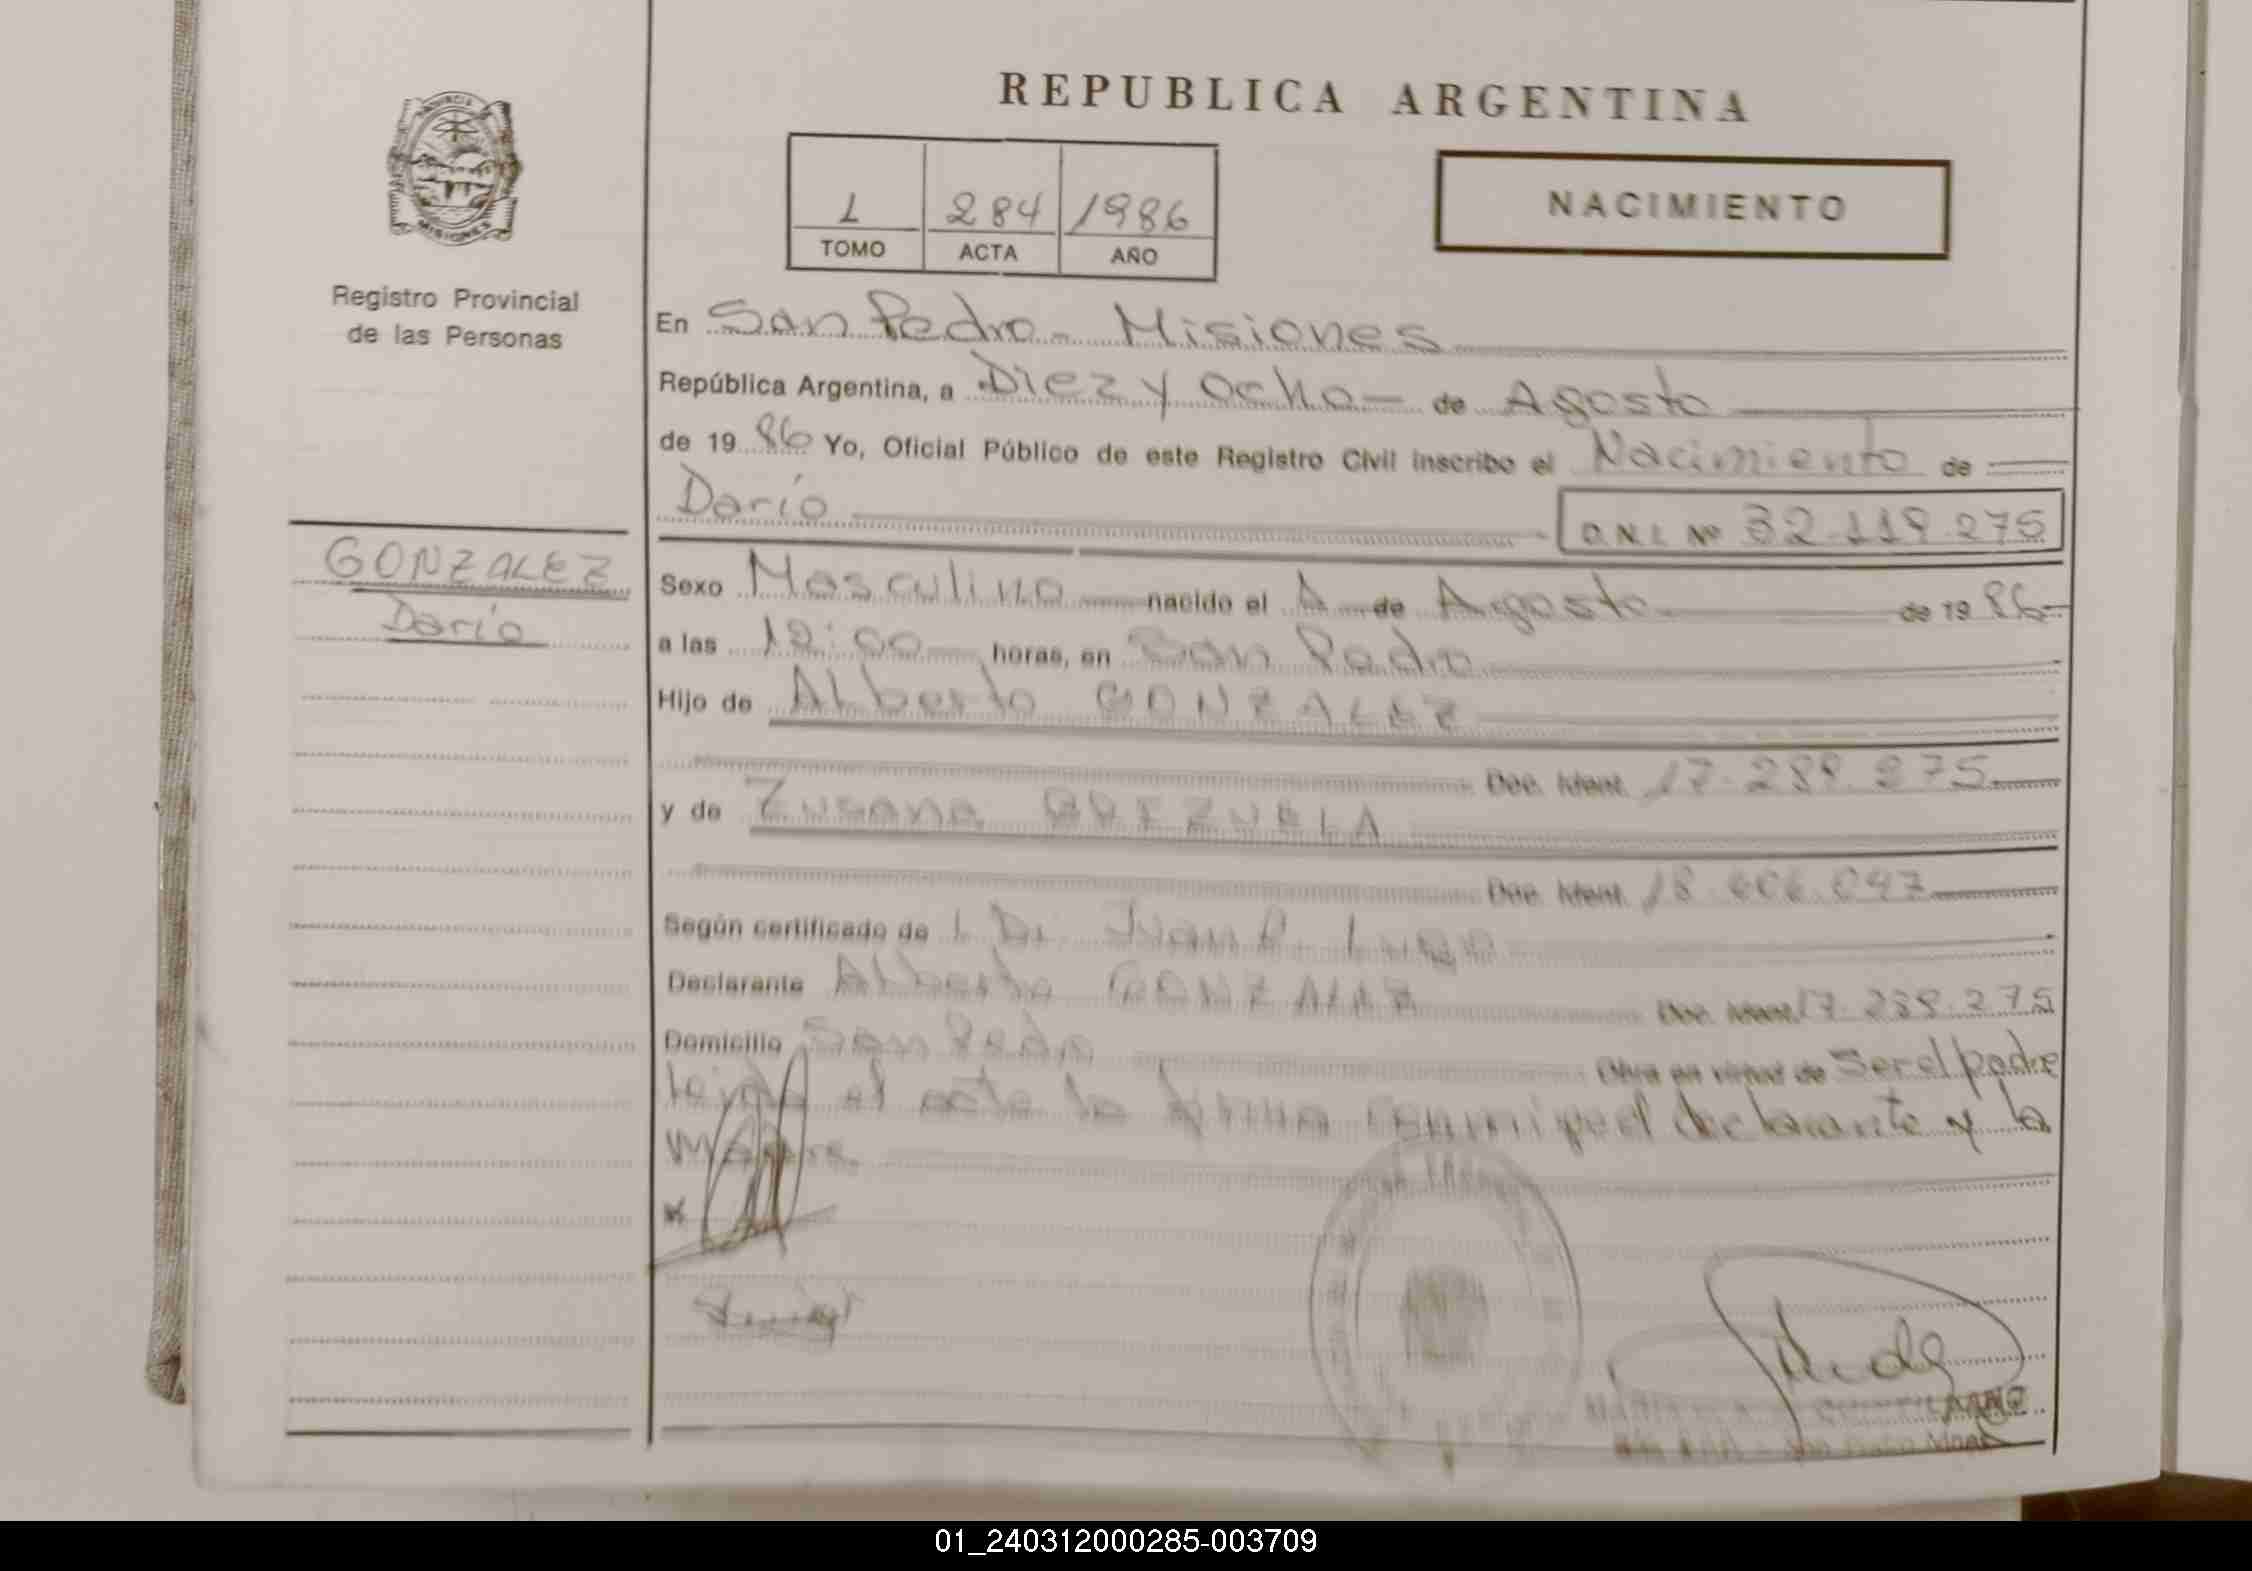 REPUBLICA ARGENTINA
PROVINCIA
MISIONES
Registro Provincial
de las Personas
1 284 1986
TOMO ACTA AÑO
NACIMIENTO
En San Pedro - Misiones
República Argentina, a Diez y Ocho - de Agosto
de 1986 Yo, Oficial Público de este Registro Civil inscribo el Nacimiento de
Darío
D.N.I. Nº 32.119.275
GONZALEZ
Darío
Sexo Masculino nacido el de Agosto de 1986
a las 12:00 horas, en San Pedro
Hijo de Alberto GONZALEZ
Doc. Ident. 17.289.275
y de Zusana
Doc. Ident. 18.606.047
Según certificado de Juana Lugo
Declarante Alberto GONZALEZ Doc. Ident. 17.289.275
Domicilio San Pedro Obra en virtud de Ser el padre
leida el acta la firman conmigo el declarante y la
Madre
01_240312000285-003709